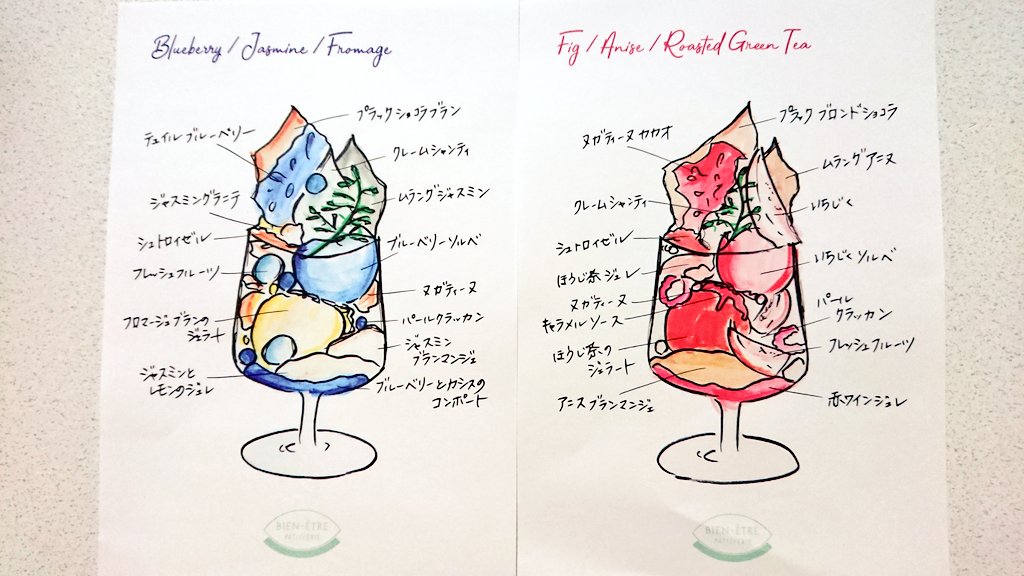 Blueberry / Jasmine / Fromage
プラックショコラブラン
テュイルブルーベリー
クレームシャンティ
ジャスミングラニテ
ムラングジャスミン
シュトロイゼル
ブルーベリーソルベ
フレッシュフルーツ
ヌガティーヌ
フロマージュブランの
ジェラート
パールクラッカン
ジャスミン
ブランマンジェ
ジャスミンと
レモンのジュレ
ブルーベリーとカシスの
コンポート
BIEN-ÊTRE
PATISSERIE
Fig / Anise / Roasted Green Tea
プラック ブロンドショコラ
ヌガティーヌ カカオ
ムラングアニス
クレームシャンティ
いちじく
シュトロイゼル
いちじくソルベ
ほうじ茶ジュレ
ヌガティーヌ
キャラメルソース
パール
クラッカン
ほうじ茶の
ジェラート
フレッシュフルーツ
アニスブランマンジェ
赤ワインジュレ
BIEN-ÊTRE
PATISSERIE